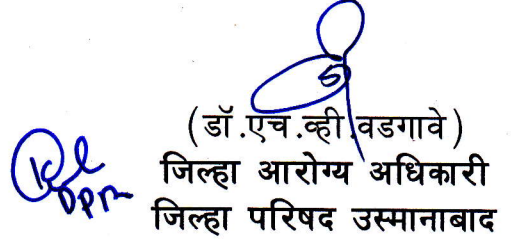 (डॉ.एच.व्ही.वडगावे)
जिल्हा आरोग्य अधिकारी
जिल्हा परिषद उस्मानाबाद
DPM